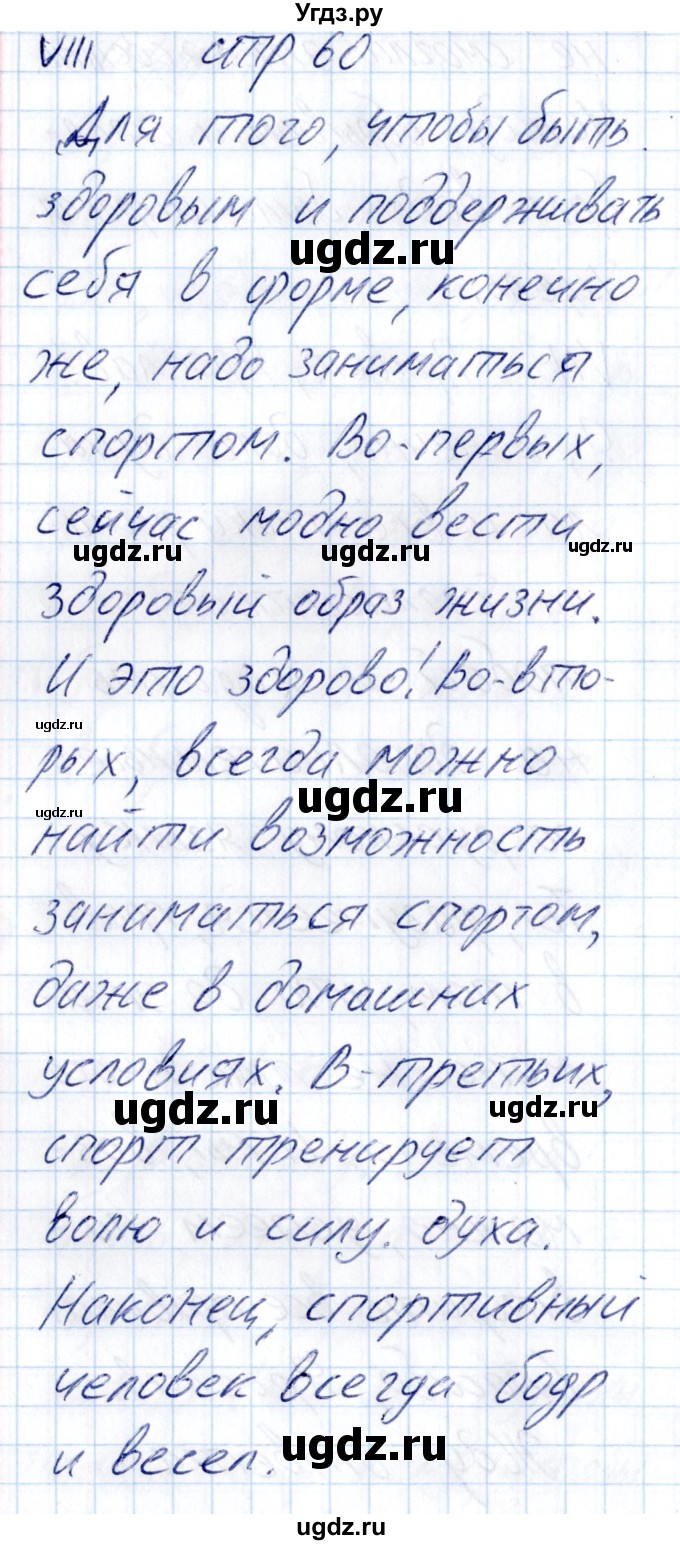 Угдз.ру
VIII стр 60
Для того, чтобы быть
здоровым и поддерживать
ugdz.ru
себя в форме, конечно
же, надо заниматься
спортом. Во-первых,
сейчас модно вести
ugdz.ru ugdz.ru ugdz.ru
здоровый образ жизни.
И это здорово! Во-вто-
ugdz.ru
рых, всегда можно
ugdz.ru
ugdz.ru
найти возможность
заниматься спортом,
даже в домашних
условиях. В-третьих,
ugdz.ru ugdz.ru
спорт тренирует
волю и силу духа.
Наконец, спортивный
человек всегда бодр
и весел.
ugdz.ru
ugdz.ru